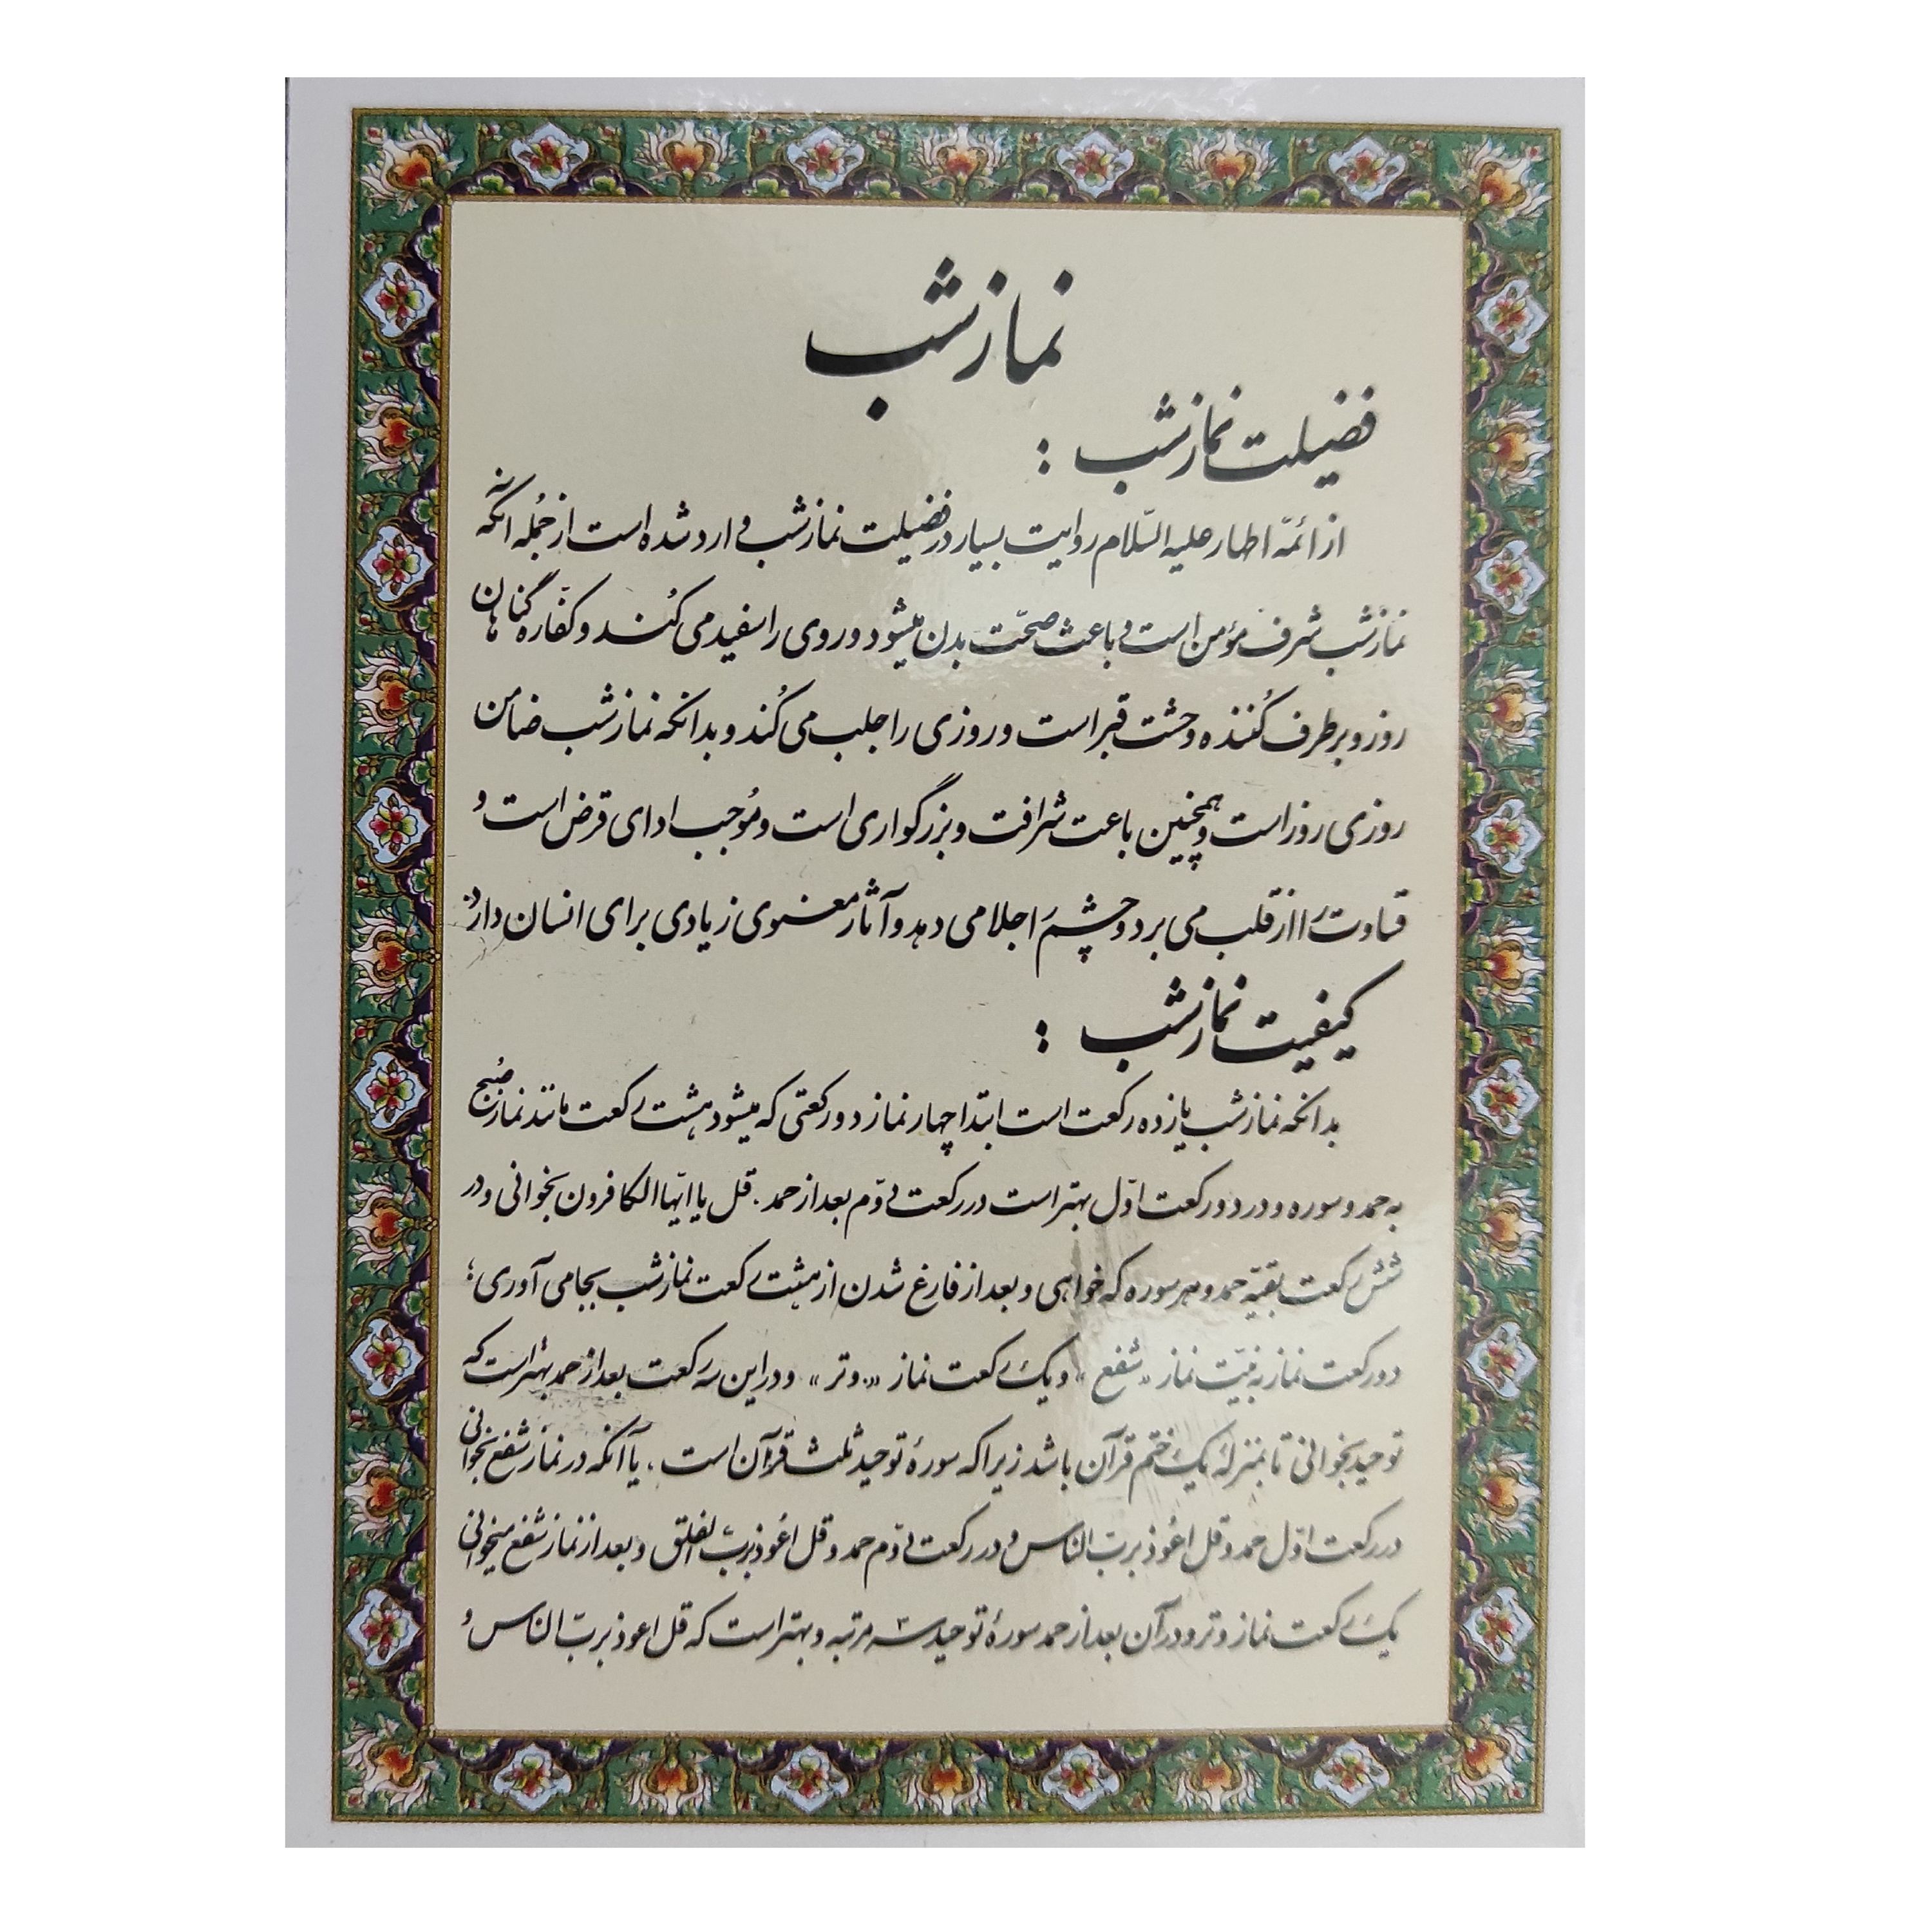 نماز شب
فضیلت نماز شب :
از ائمّه اطهار علیه السّلام روایت بسیار در فضیلت نماز شب وارد شده است از جُمله آنکه
نماز شب شرف مؤمن است و باعث صحّت بدن میشود و روی را سفید می کُند و کفّاره گناهان
روز و برطرف کُننده وحشت قبر است و روزی را جلب می کُند و بدانکه نماز شب ضامن
روزی روز است و همچنین باعت شرافت و بزرگواری است و مُوجب ادای قرض است و
قساوت را از قلب می برد و چشم را جلا می دهد و آثار معنوی زیادی برای انسان دارد.
کیفیت نماز شب :
بدانکه نماز شب یازده رکعت است ابتدا چهار نماز دو رکعتی که میشود هشت رکعت مانند نماز صُبح
به حمد و سوره و در دو رکعت اوّل بهتر است در رکعت دوّم بعد از حمد . قل یا ایّها الکافرون بخوانی و در
شش رکعت بقیّه حمد و هر سوره که خواهی و بعد از فارغ شدن از هشت رکعت نماز شب بجا می آوری ؛
دو رکعت نماز به نیّت نماز «شفع» و یک رکعت نماز «وتر» و در این سه رکعت بعد از حمد بهتر است که
توحید بخوانی تا بمنزلهٔ یک ختم قرآن باشد زیرا که سورهٔ توحید ثلث قرآن است . یا آنکه در نماز شفع بخوانی
در رکعت اوّل حمد و قل اعُوذ بربّ النّاس و در رکعت دوّم حمد و قل اعُوذ بربّ الفلق و بعد از نماز شفع میخوانی
یک رکعت نماز وتر و در آن بعد از حمد سورهٔ توحید سه ۳ مرتبه و بهتر است که قل اعوذ بربّ النّاس و